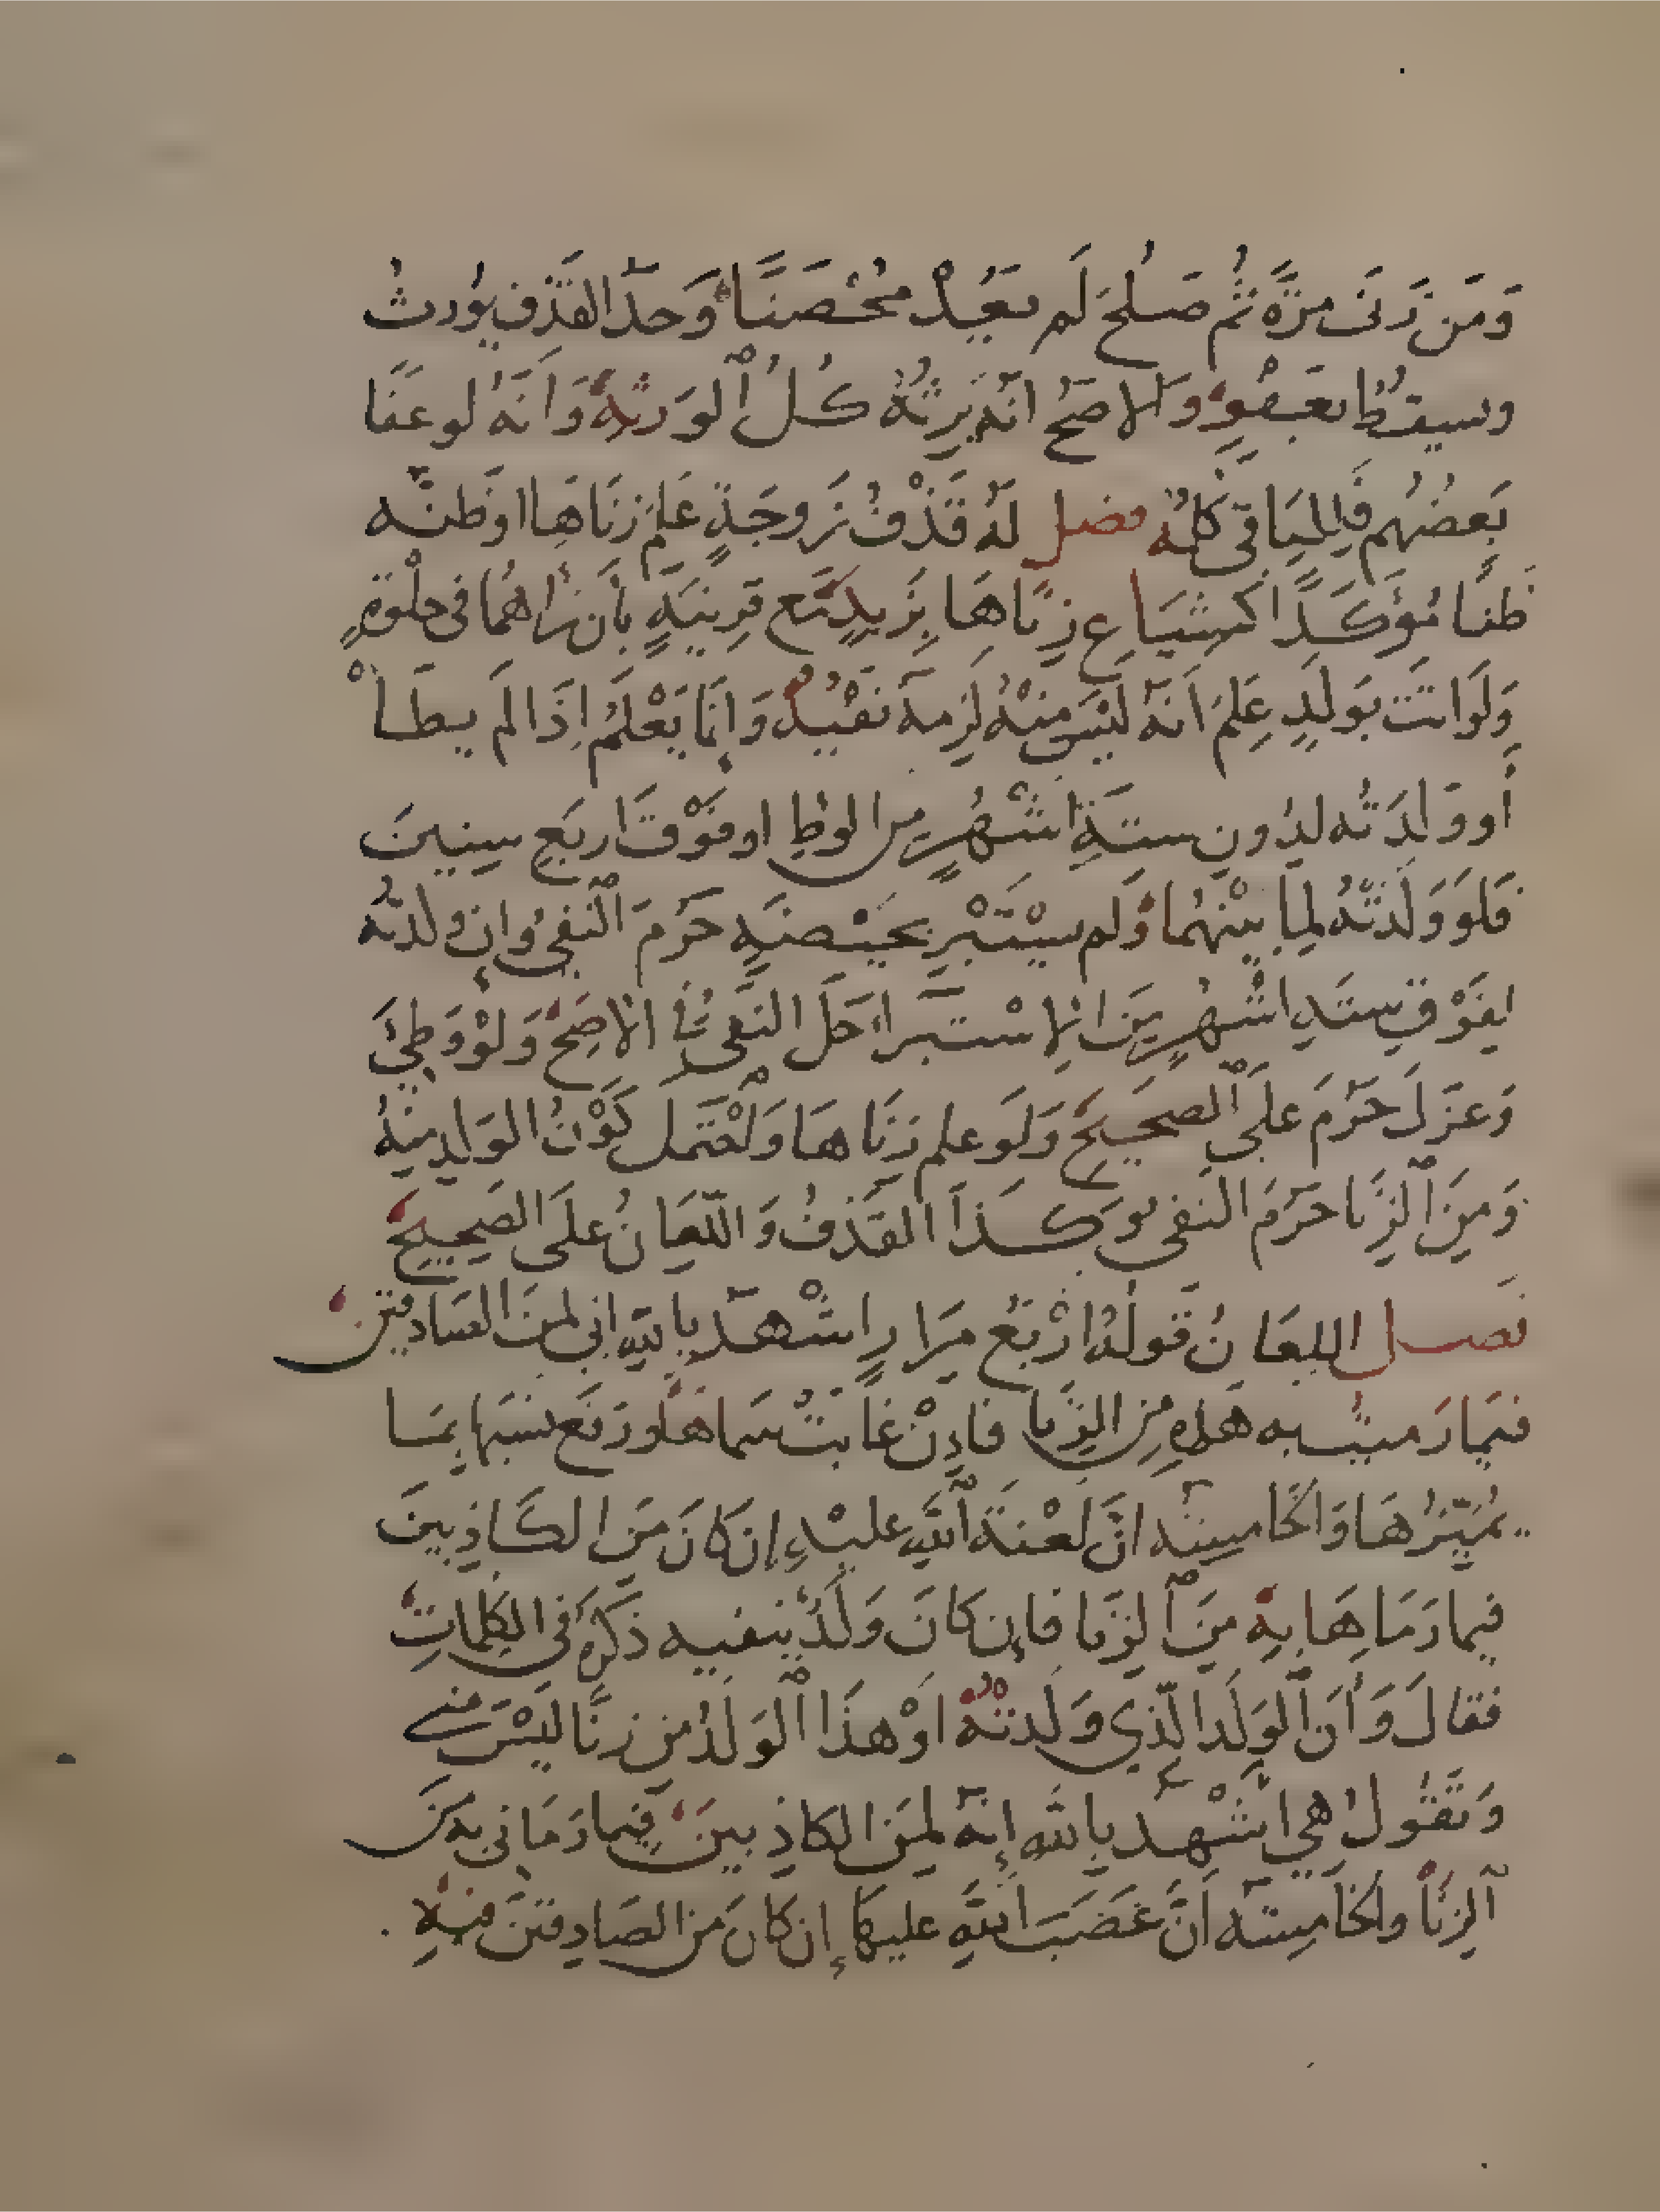 وَمَن زَنَى مرَّةً ثُم صَلُحَ لَم يَعُدْ مُحْصَنًا وَحَدُّ القَذْف يُورثُ
وَيسقُطُ بعَفوٍ وَالاصَحُّ انَّه يَرِثُهُ كُلُّ الوَرثَةِ وَأَنَّهُ لو عَفَا
بَعضُهُم فَلِلبَاقي كلُّه فصل لهُ قَذْفُ زَوجَةٍ عَلِمَ زِنَاهَا اوظنَّه
ظَنًّا مُؤَكَّدًا كَشِيَاعِ زِنَاهَا بِزَيدٍ مَّع قرِينَةٍ بأَن رَأهُمَا فى خلْوَةٍ
وَلَو اتَت بوَلَدٍ عَلِمَ انَّهُ لَيْسَ مِنْهُ لَزِمهُ نَفْيُهُ وَإِنَّمَا يَعْلَمُ إِذَا لَم يطَأْ
أَو وَلدَتْه لدُونِ ستَّةِ اشْهُرٍ مِن الوطِ او فَوْقَ اربَعِ سِنِينَ
فَلَو وَلَدَتْهُ لِمَا بيْنَهُمَا وَلَم يسْتَبْرِ بحَيْضَةٍ حَرُمَ النَّفيُ وَإِن ولدتْهُ
لِفَوْقِ ستَّةِ اشْهُرٍ مِّنَ الِاسْتبرَاءِ حَلَّ النَّفيُ فى الاصَحِّ وَلَوْ وَطِئَ
وَعَزَلَ حَرُمَ علَى الصحِيحِ وَلَو علم زِنَاهَا وَاحْتَمل كَوْنُ الوَلدِ مِنْهُ
وَمِنَ الزِّنَا حَرُمَ النَّفى وَكَذَا القَذْفُ وَاللِّعَانُ علَى الصَّحِيحِ
فصل اللعَانُ قولُهُ ارْبَعَ مَرَارٍ اشْهَدُ بِاللَّهِ انى لمِنَ الصَّادقينَ
فيمَا رَميْتُ به هَذِهِ مِنَ الزِّنَا فَإِنْ غَابَتْ سمَاهَا ورَفَع نسَبَهَا بمَا
يُمَيِّزُهَا وَالخَامِسَة انَّ لَعْنَةَ اللَّهِ عليْهِ إِن كَانَ مِنَ الكَاذِبِينَ
فيما رَمَاهَا بِهِ مِنَ الزنَا فإِن كانَ وَلَدٌ ينفيه ذَكَرَهُ فى الكلِمَاتِ
فقالَ وَأَنَّ الوَلَدَ الَّذِي وَلَدتْهُ اوْ هذَا الْوَلَدُ من زِنًا لَيْسَ مِنى
وَتَقُولُ هِي اشْهَدُ بِاللَّه إِنَّه لمِنَ الكاذِبينَ فِيما رَمَانى به مِنَ
الزِّنَا والخَامِسَة انَّ غَضَبَ اللَّهِ عليهَا إِن كانَ مِنَ الصَّادِقِينَ فيهِ